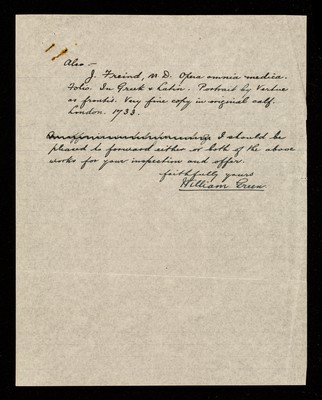 Also —
J. Freind, M.D. Opera omnia medica.
Folio. In Greek & Latin. Portrait by Vertue
as frontis. Very fine copy in original calf.
London. 1733.
I should be
pleased to forward either or both of the above
works for your inspection and offer.
faithfully yours
William Green